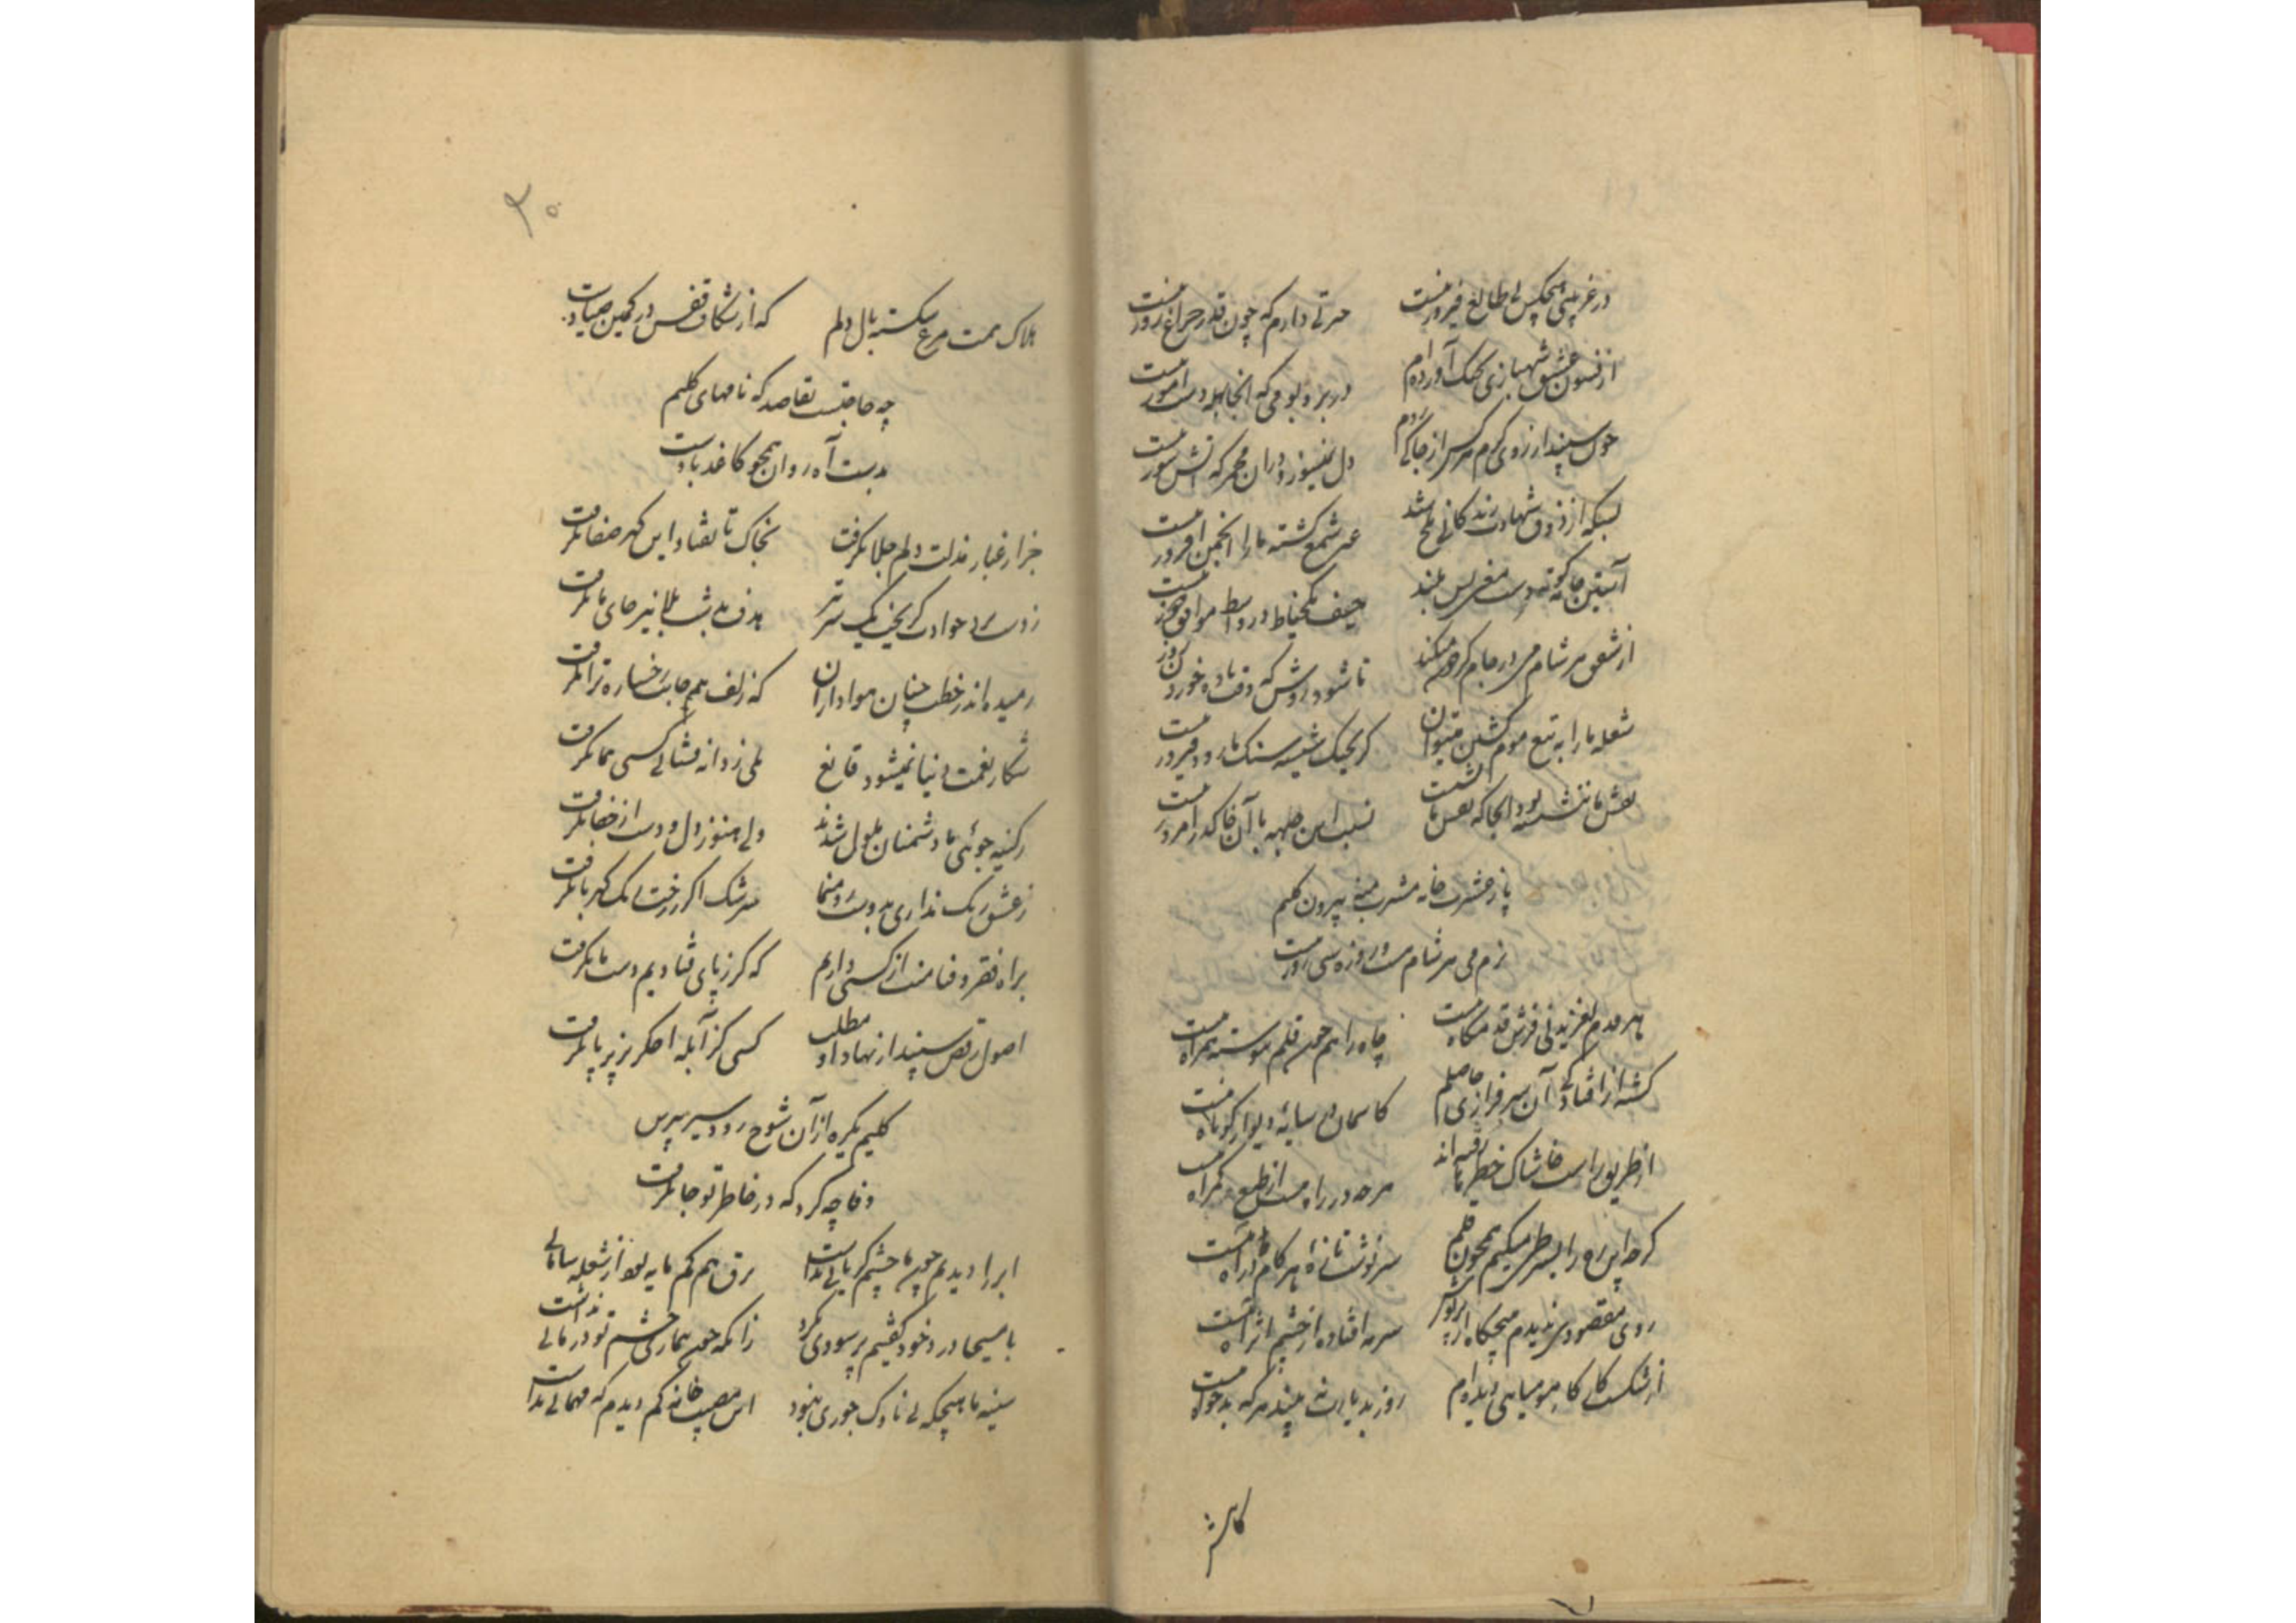 در غریبی هیچکس بی طالع فیروز نیست حسرتی دارم که چون قدر چراغ روز نیست
از فسون عشق شهبازی بچنگ آورده ام در بر و بومی که آنجا بهله دست آموز نیست
چون سپند از روی گرم هر کس از جا کی روم دل نمیسوزد در آن مجمر که آتش سوز نیست
بسکه از ذوق شهادت زندگانی تلخ شد غیر شمع کشته ما را انجمن افروز نیست
آستین جا کوته و دست بلند
از شفق هر شام می در جام گردون میکند تا شود روشن که وقت باده خوردن روز نیست
شعله ما را به تیغ موم کشتن میتوان گر بجنگ شیشه سنگ ما رود فیروز نیست
نقش ما ننشسته بود آنجا که نقش پا نشست نسبت این جبهه با آن خاک در امروز نیست
پا ز عشرت خانه مشرب منه بیرون کلیم
بزم می هر شام هست و روزه سی روز نیست
هر قدم لغزیدنی فرش قدمگاه منست چاه راهم چون قلم پیوسته همراه منست
گشته از افتادگی آن سرفرازی حاصلم کاسمان در سایه دیوار کوتاه منست
از طریق راست خاشاک خطر نارفته اند هر چه در راه هست از طبع گمراه منست
گرچه این ره را بسر طی میکنم همچون قلم سرنوشت تازه هر گام در راه منست
روی مقصودی ندیدم هیچگاه از پرتوش سرمه افتاده از چشم اثر آه منست
از شکست کار کاهی مومیایی دیده ام روز بد یارب نه بیند هر که بدخواه منست
کاهش
۳۰
هلاک همت مرغ شکسته بال دلم که از شکاف قفس در کمین صیادست
چه حاجتست بقاصد که نامهای کلیم
بدست آه روان همچو کاغذ بادست
جز از غبار مذلت دلم جلا نگرفت بخاک تا نفتاد این گهر صفا نگرفت
ز دست حوادث گریختیم بیک سر تیر هدف به پیش بلا نیز جای ما نگرفت
رمیده اند ز خطت چنان هواداران که زلف هم جانب رخساره ترا نگرفت
شکار نعمت دنیا نمیشود قانع بلی ز دانه فشانی کسی هما نگرفت
ز کینه جوئی ما دشمنان ملول شدند ولی هنوز دل دوست از جفا نگرفت
ز عشق رنگ نداری بدوست رو منما سرشک اگر رخت یک گهر بها نگرفت
براه فقر و فنا منت از کسی داریم که گر ز پای فتادیم دست ما نگرفت
اصول رقص سپند از نهاد او مطلب کسی کز آبله اخگر بزیر پا نگرفت
کلیم گریه از آن شوخ زود سیر بپرس
وفا چه کرد که در خاطر تو جا نگرفت
ابر را دیدیم چون ما چشم گریانی نداشت برق هم کم مایه بود از شعله سامانی نداشت
با مسیحا درد خود گفتیم پر سودی نکرد زانکه چون بیماری چشم تو درمانی نداشت
سینه ما هیچگه بی ناوک جوری نبود این مصیبت خانه کم دیدم که مهمانی نداشت